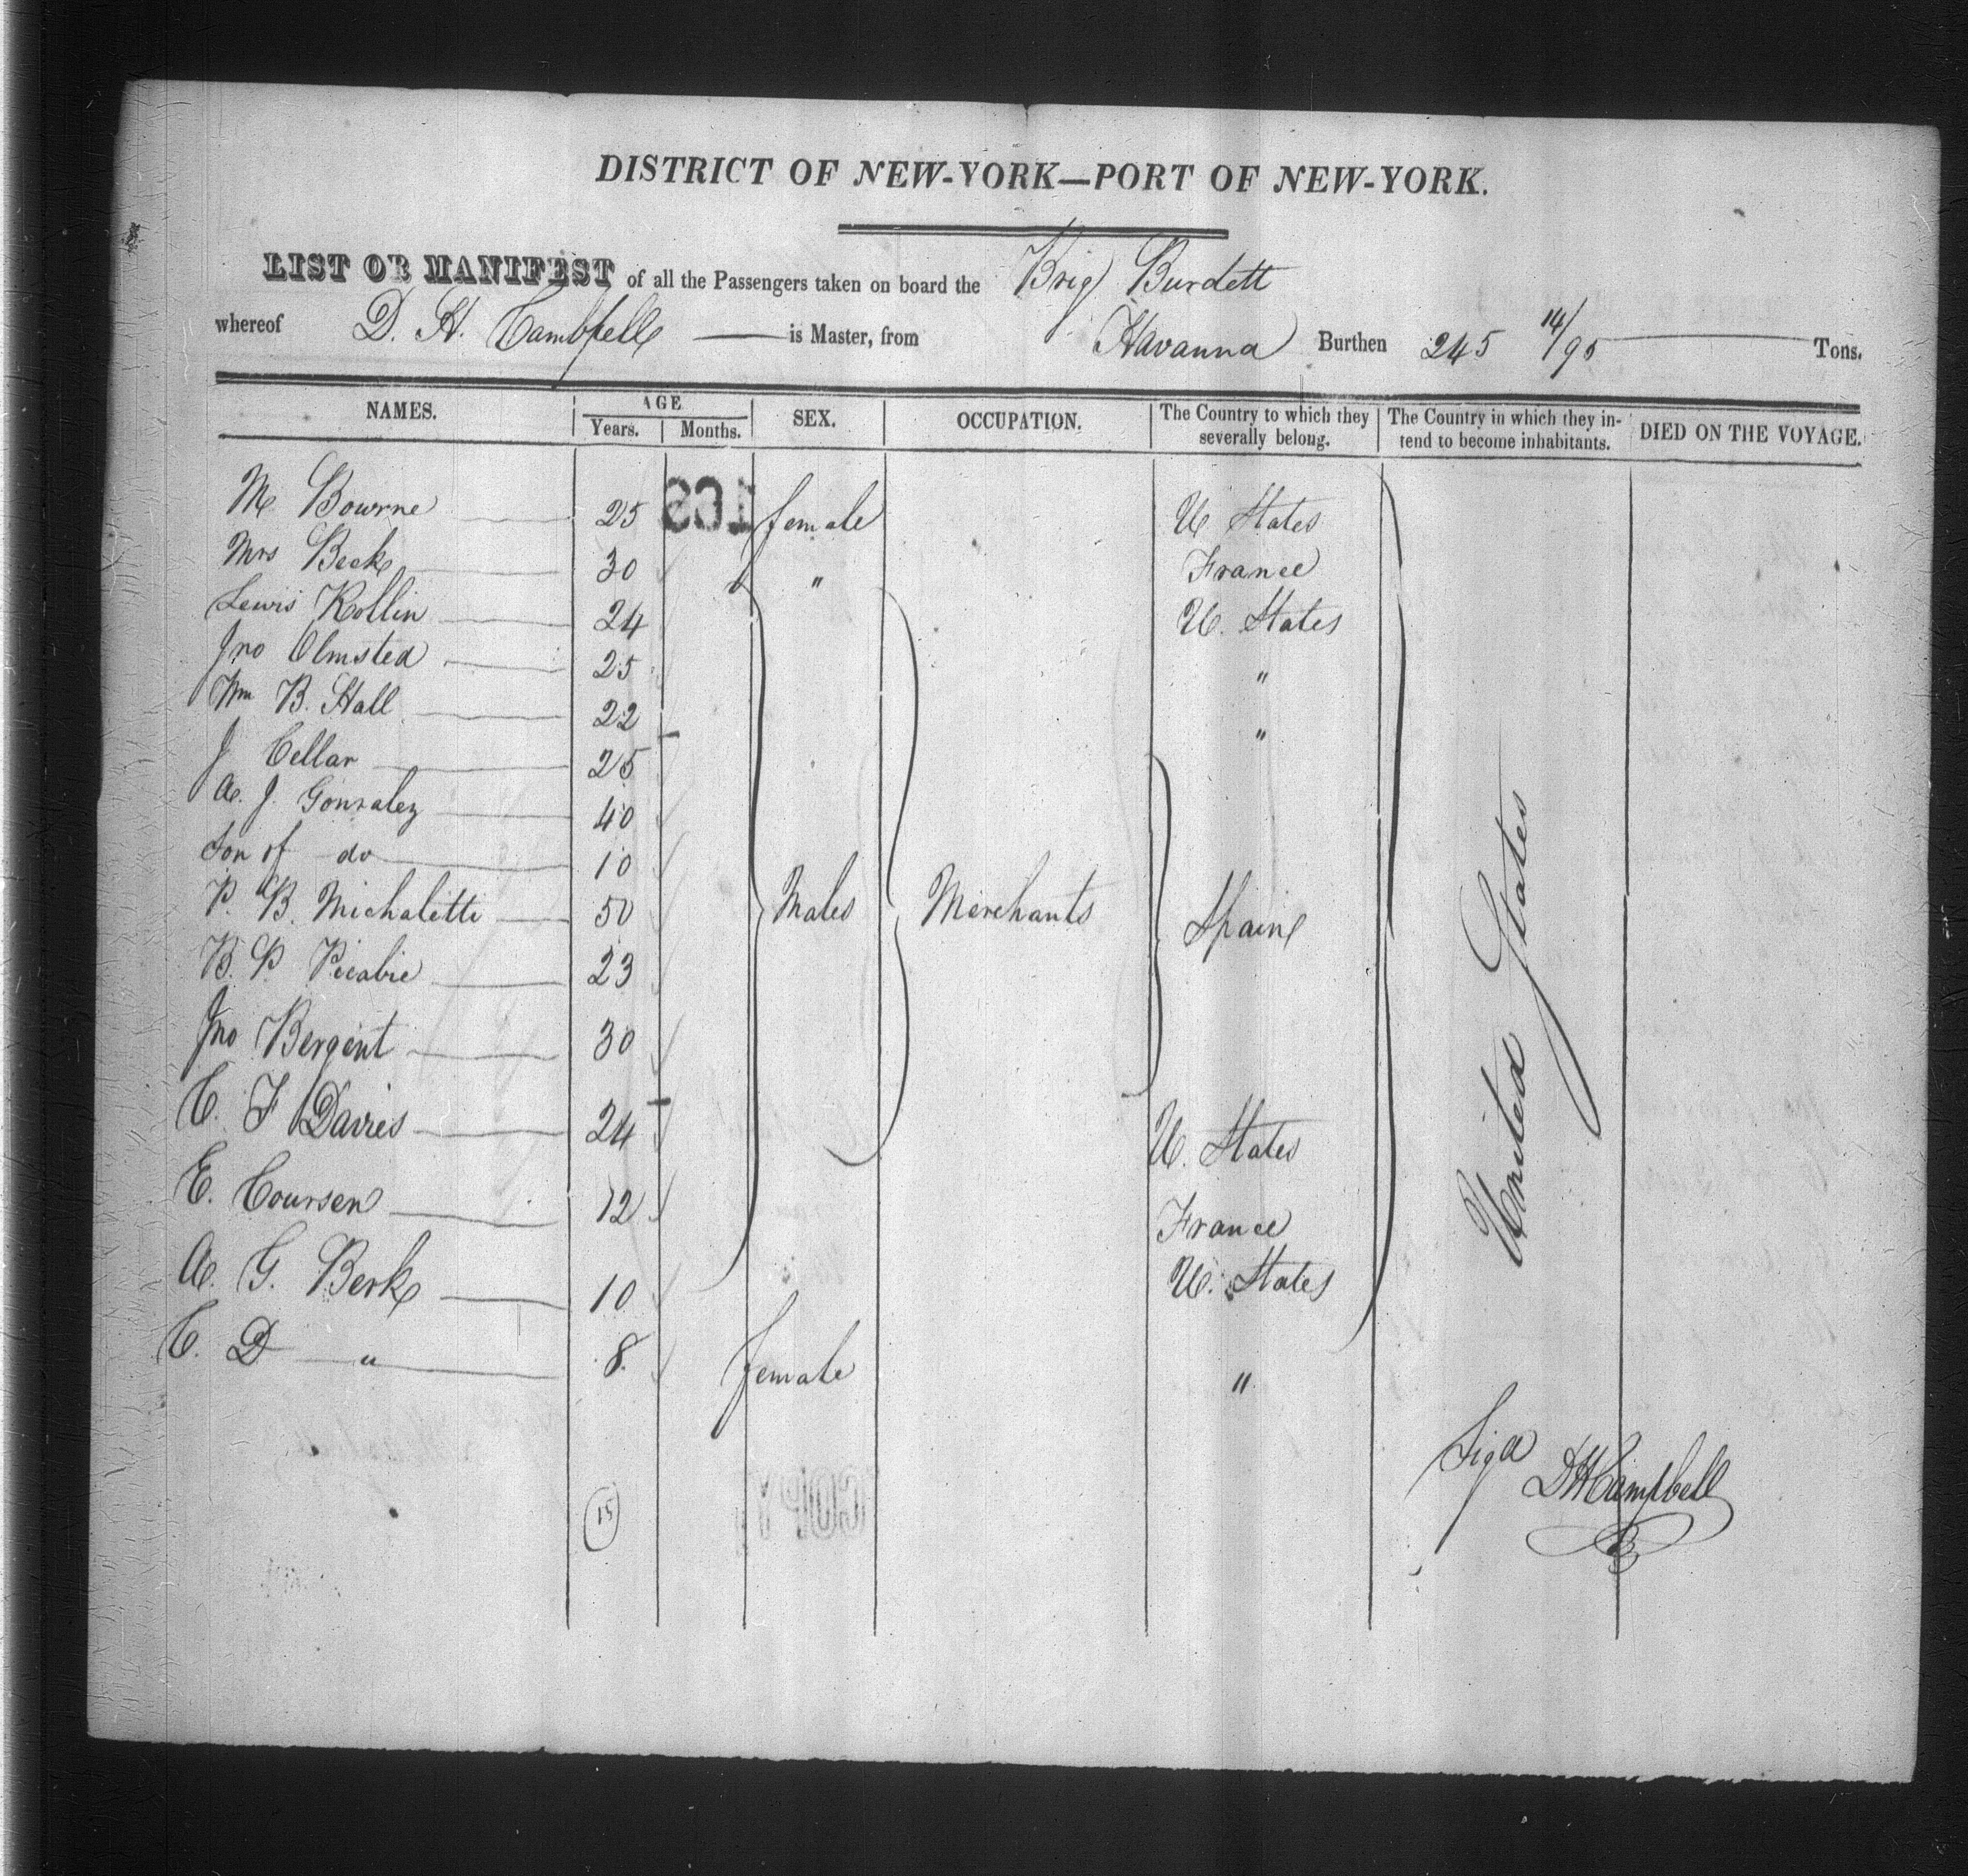 DISTRICT OF NEW-YORK—PORT OF NEW-YORK.
LIST OR MANIFEST of all the Passengers taken on board the Brig Burdett
whereof D. H. Campbell is Master, from Havanna Burthen 245 14/95 Tons.
NAMES. AGE Years. Months. SEX. OCCUPATION. The Country to which they severally belong. The Country in which they intend to become inhabitants. DIED ON THE VOYAGE.
M Bowrne 25 female U States
Mrs Beck 30 " France
Lewis Rollin 24 U. States
Jno Olmsted 25 "
Wm B. Hall 22 "
J Cellar 25
A. J. Gonzalez 40
Son of do 10
P. B. Michaletti 50 Males Merchants Spain
B. P. Picabie 23
Jno Bergent 30
C. F Davies 24 U. States
E. Coursen 12 France
A. G. Berk 10 U. States
C. D " 8 female "
United States
15
COPY
Sigd D H Campbell